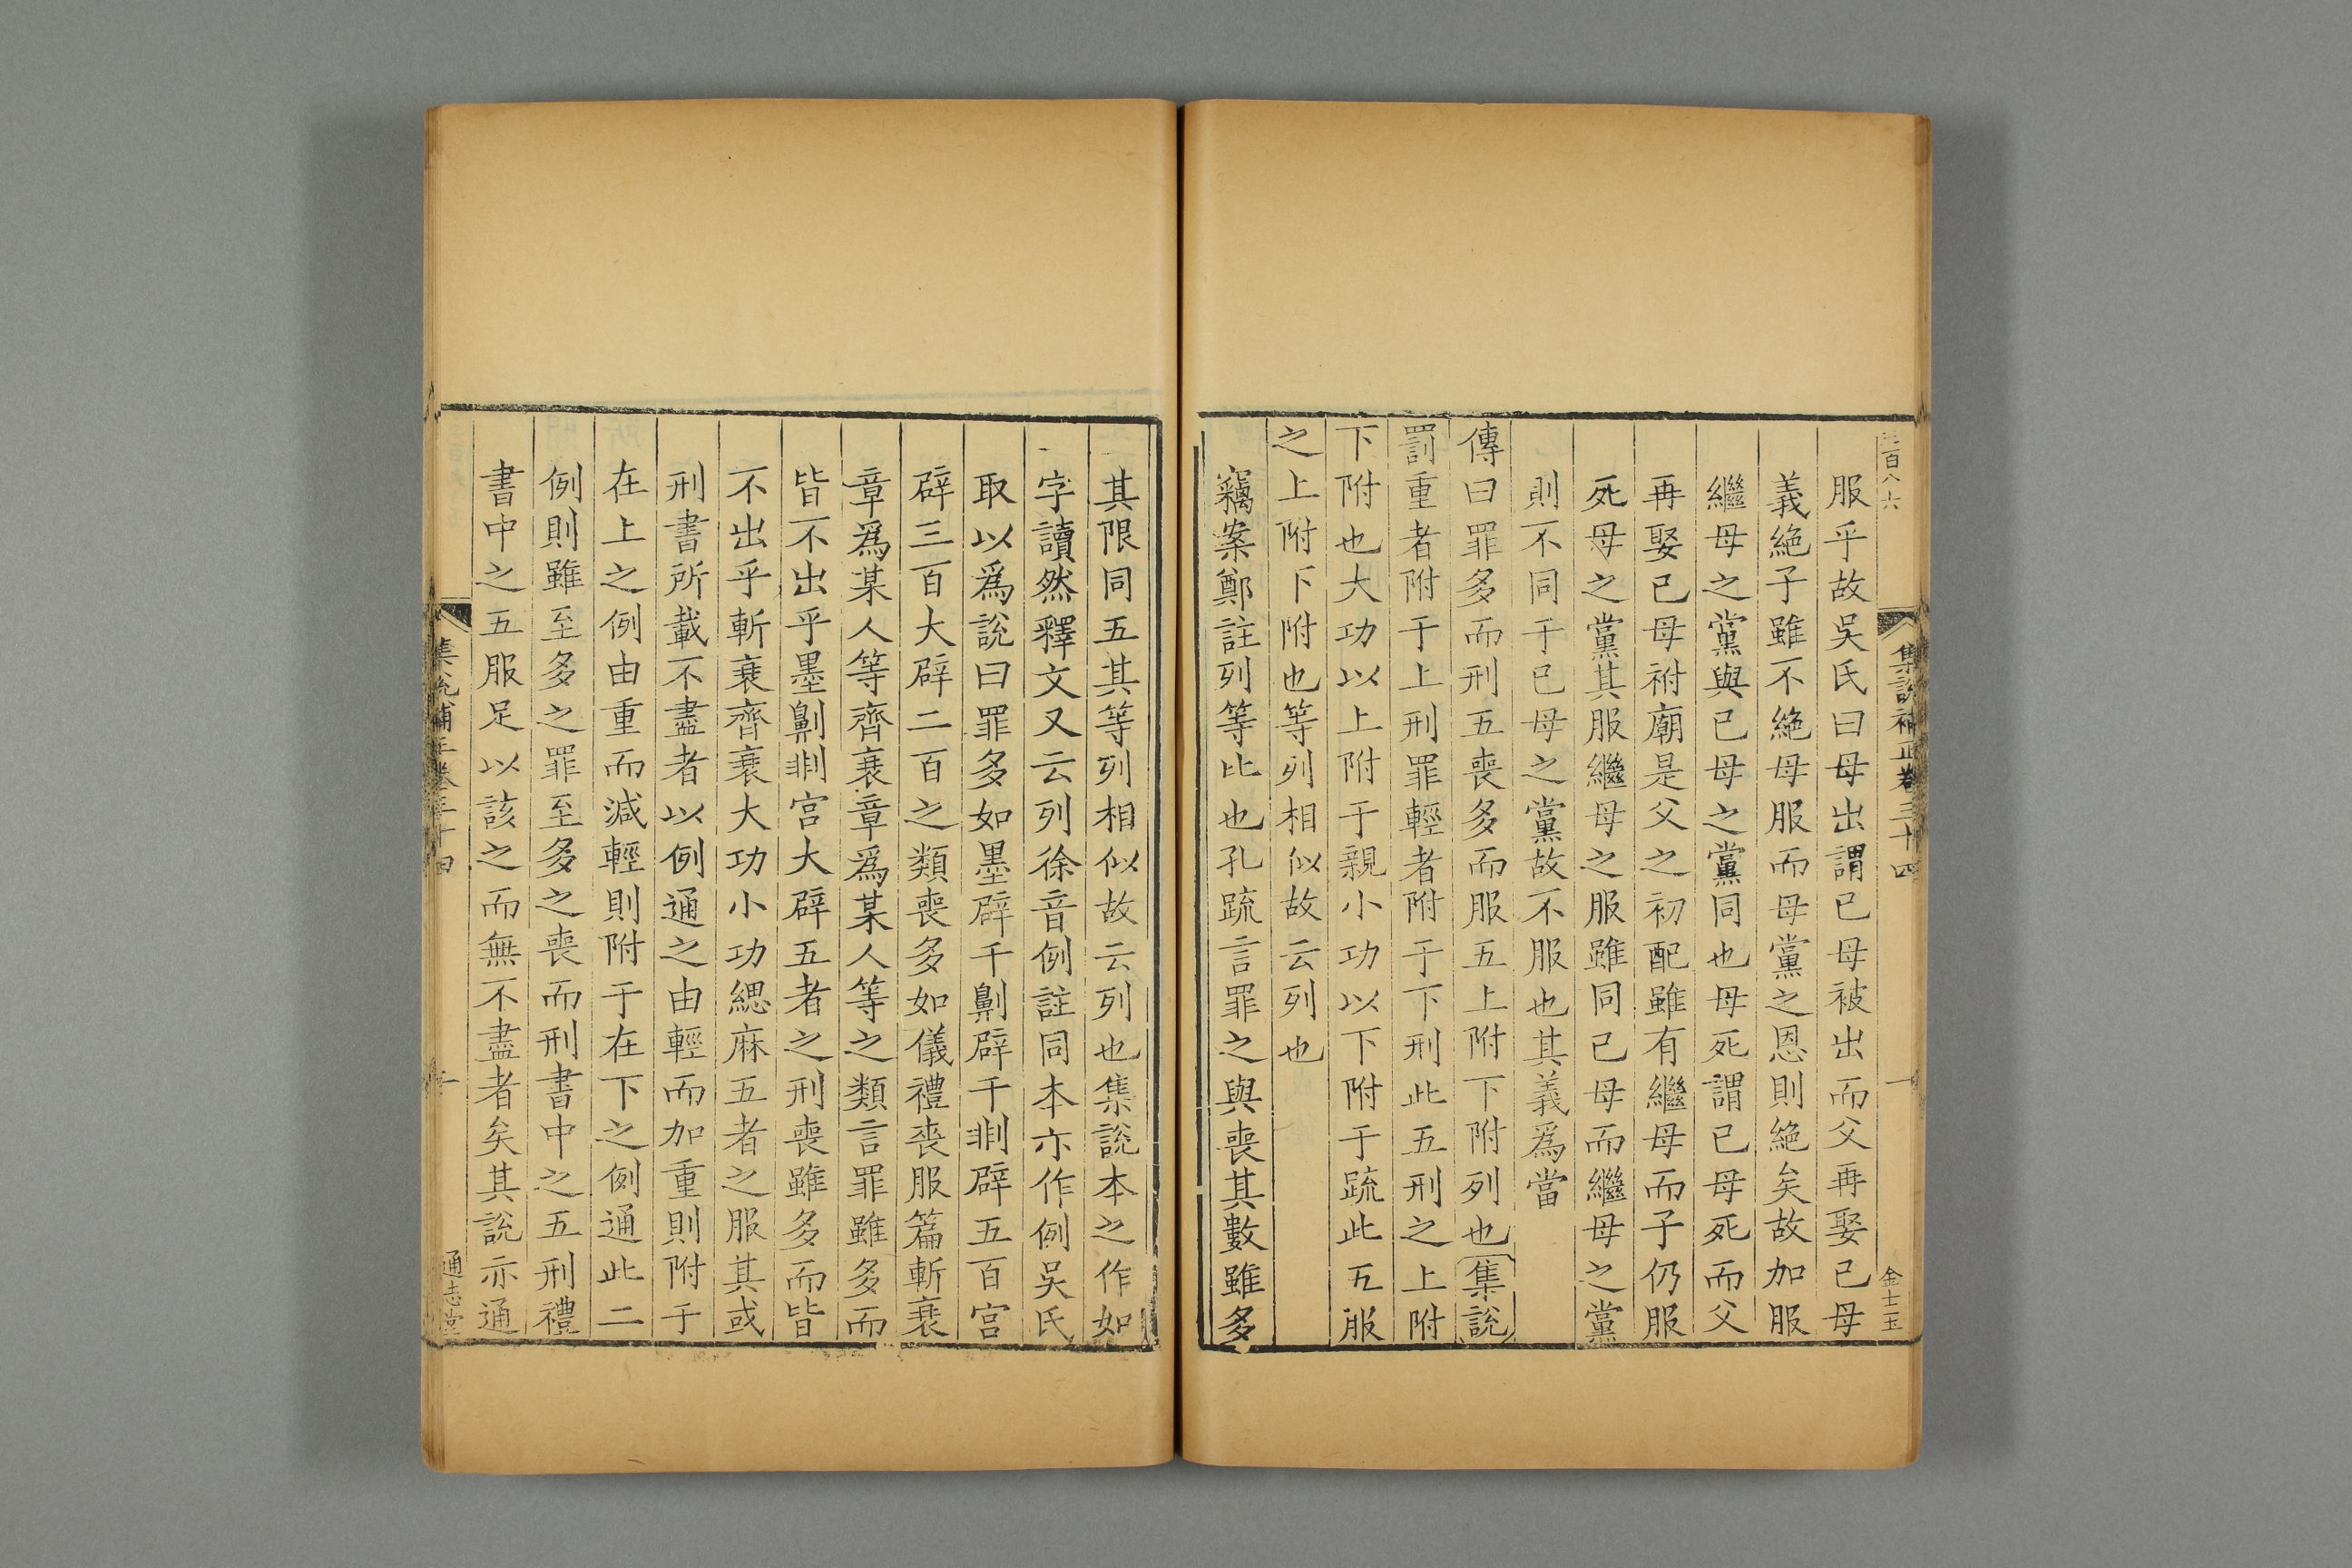 集說補正卷三十四
一
金士玉
服乎故吴氏曰母出謂已母被出而父再娶已母
義絶子雖不絶母服而母黨之恩則絶矣故加服
繼母之黨與已母之黨同也母死謂已母死而父
再娶已母祔廟是父之初配雖有繼母而子仍服
死母之黨其服繼母之服雖同已母而繼母之黨
則不同于已母之黨故不服也其義爲當
傳曰罪多而刑五喪多而服五上附下附列也集說
罰重者附于上刑罪輕者附于下刑此五刑之上附
下附也大功以上附于親小功以下附于疏此五服
之上附下附也等列相似故云列也
竊案鄭註列等比也孔疏言罪之與喪其數雖多
其限同五其等列相似故云列也集說本之作如
字讀然釋文又云列徐音例註同本亦作例吴氏
取以爲說曰罪多如墨辟千劓辟千剕辟五百宫
辟三百大辟二百之類喪多如儀禮喪服篇斬衰
章爲某人等齊衰章爲某人等之類言罪雖多而
皆不出乎墨劓剕宫大辟五者之刑喪雖多而皆
不出乎斬衰齊衰大功小功緦麻五者之服其或
刑書所載不盡者以例通之由輕而加重則附于
在上之例由重而減輕則附于在下之例通此二
例則雖至多之罪至多之喪而刑書中之五刑禮
書中之五服足以該之而無不盡者矣其說亦通
集說補正卷三十四
通志堂